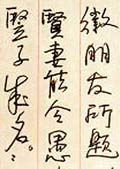 徵朋友所題
賢妻能令愚
豎子成名。